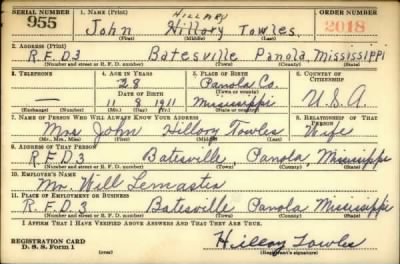 SERIAL NUMBER 1. NAME (Print) ORDER NUMBER
HILLARY
955 John Hillory Towles. 2018
(First) (Middle) (Last)
2. ADDRESS (Print)
R.F.D3 Batesville Panola, MISSISSIPPI
(Number and street or R. F. D. number) (Town) (County) (State)
3. TELEPHONE 4. AGE IN YEARS 5. PLACE OF BIRTH 6. COUNTRY OF CITIZENSHIP
28 Panola Co.
DATE OF BIRTH (Town or county)
— 11 8 1911 Mississippi U.S.A.
(Exchange) (Number) (Mo.) (Day) (Yr.) (State or country)
7. NAME OF PERSON WHO WILL ALWAYS KNOW YOUR ADDRESS 8. RELATIONSHIP OF THAT PERSON
Mrs John Hillory Towles Wife
(Mr., Mrs., Miss) (First) (Middle) (Last)
9. ADDRESS OF THAT PERSON
R.F.D3 Batesville, Panola Mississippi
(Number and street or R. F. D. number) (Town) (County) (State)
10. EMPLOYER'S NAME
Mr. Will Lemaster
11. PLACE OF EMPLOYMENT OR BUSINESS
R.F.D.3 Batesville Panola Mississippi
(Number and street or R. F. D. number) (Town) (County) (State)
I AFFIRM THAT I HAVE VERIFIED ABOVE ANSWERS AND THAT THEY ARE TRUE.
REGISTRATION CARD
D. S. S. Form 1 Hillory Towles
(Registrant's signature)